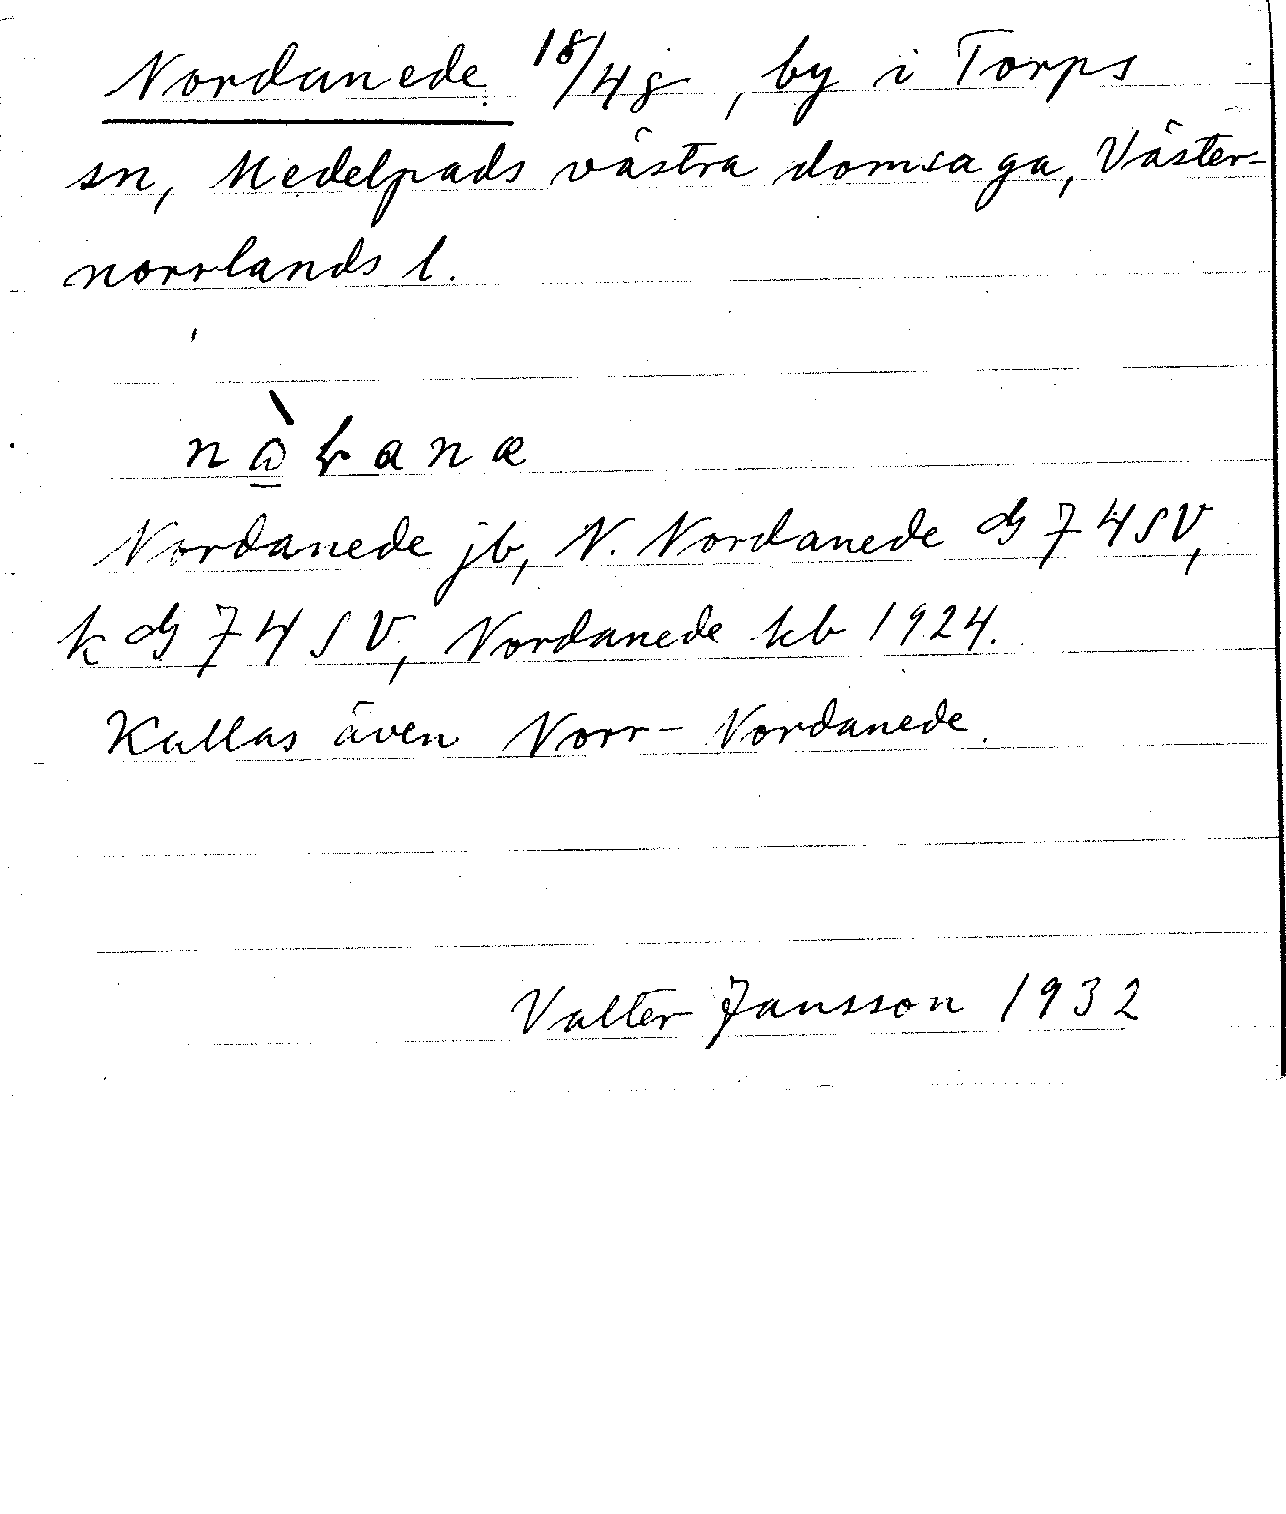 Nordanede 18/48, by i Torps
sn, Medelpads västra domsaga, Väster-
norrlands l.
Nordanede jb, N. Nordanede GS 74 SV,
k GS 74 SV, Nordanede kb 1924.
Kallas även Norr-Nordanede.
Valter Jansson 1932